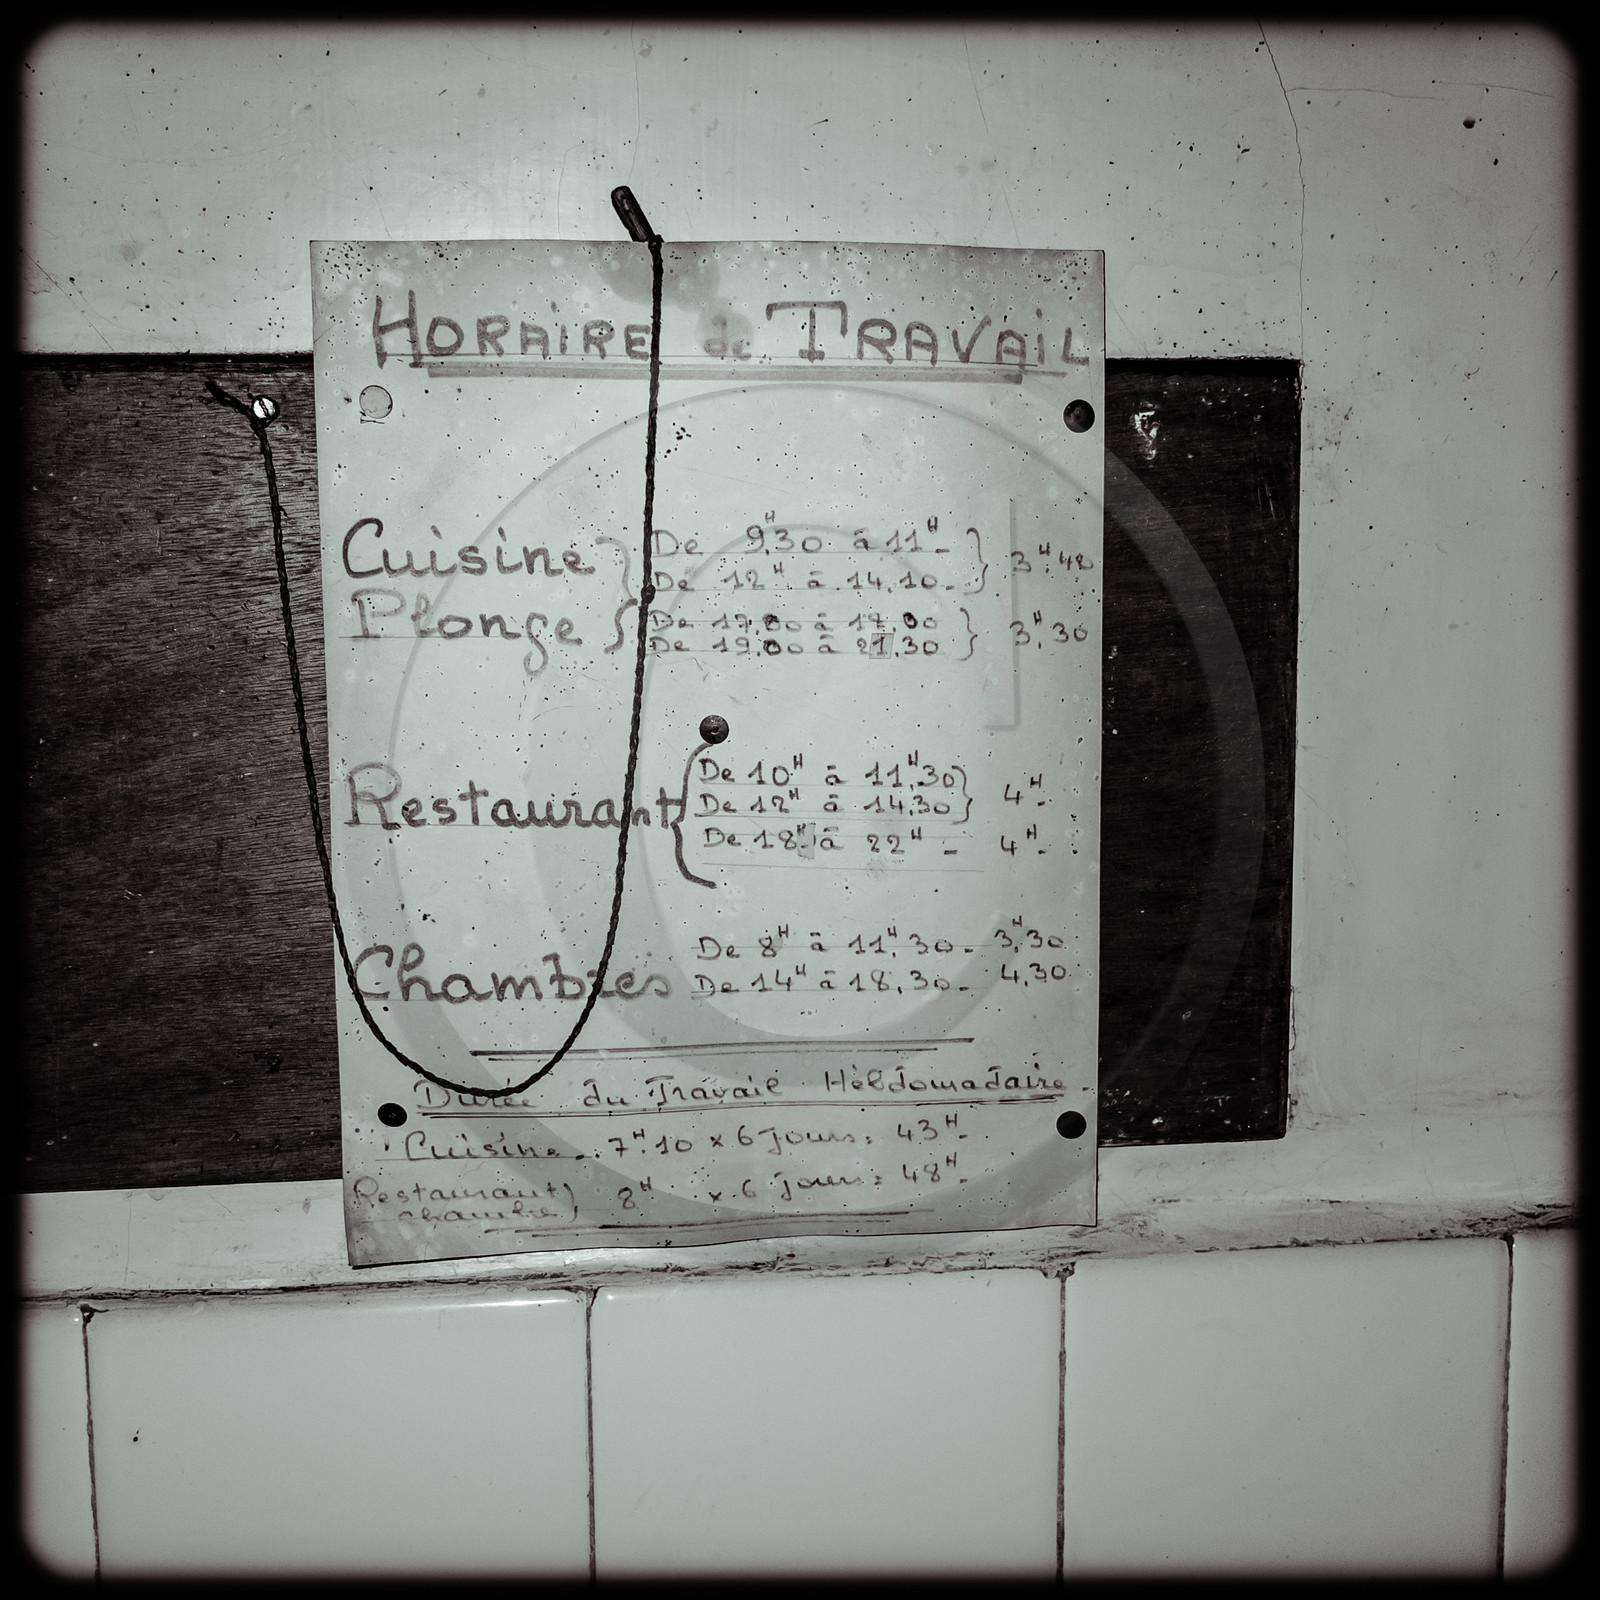 HORAIRE de TRAVAIL
Cuisine
Plonge
De 9H,30 à 11H -
De 12H à 14,10 -
3H,40
De 17,00 à 17,00
De 19,00 à 21,30
3H,30
Restaurant
De 10H à 11H,30
De 12H à 14,30
4H-
De 18H- à 22H -
4H-
Chambres
De 8H à 11H,30 - 3H,30
De 14H à 18,30 - 4,30
Durée du Travail Hèbdomadaire -
Cuisine - 7H.10 x 6 jours : 43H-
Restaurant
chambre
8H x 6 jours : 48H-